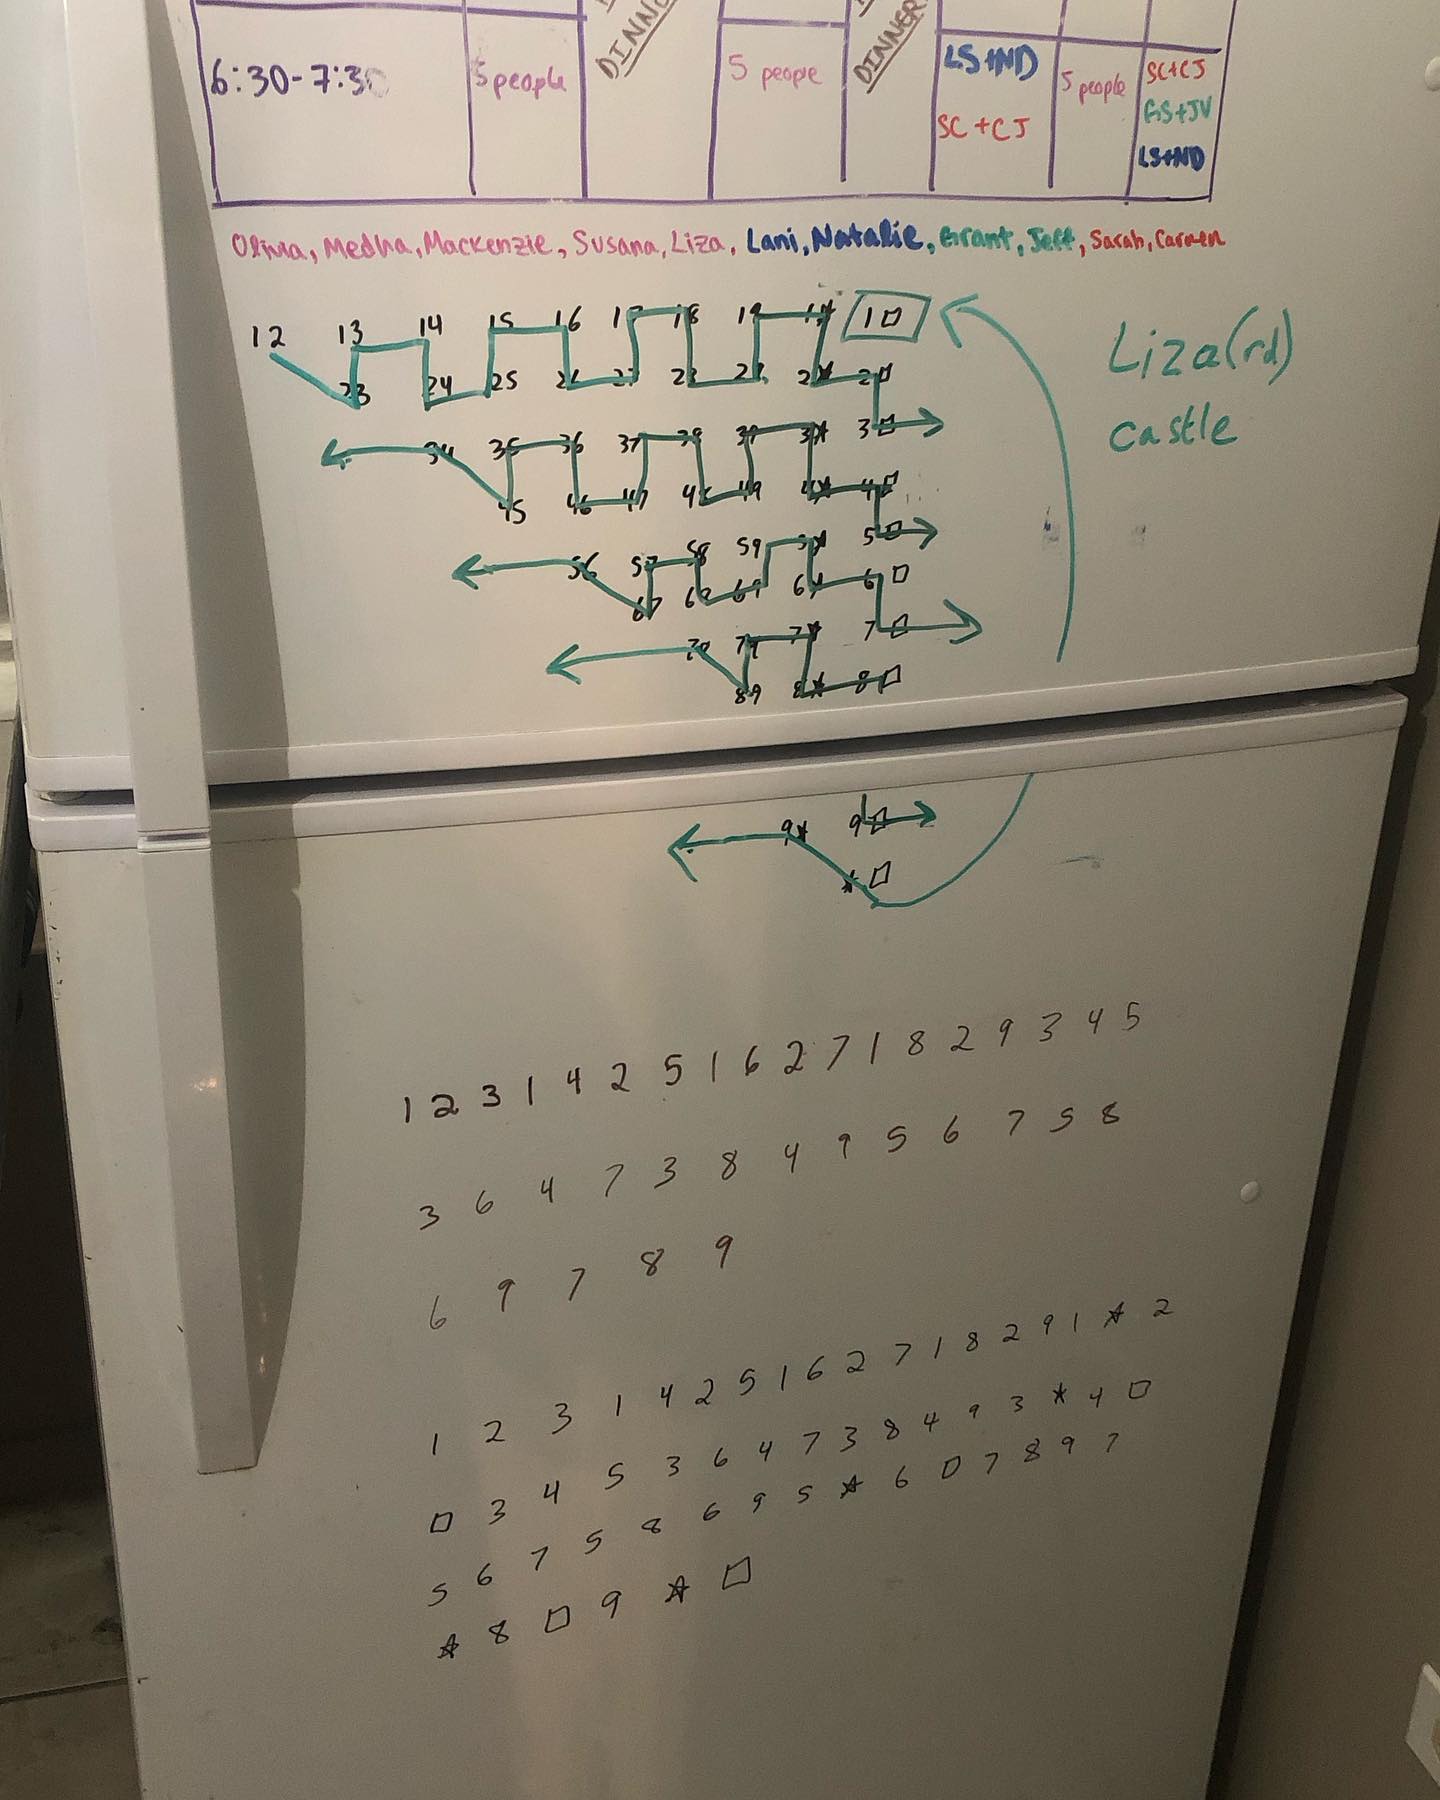 6:30-7:30 5 people DINNER 5 people DINNER LS+ND 5 people SC+CJ
SC+CJ GS+JV
LS+ND
Olivia, Medha, Mackenzie, Susana, Liza, Lani, Natalie, Grant, Jeff, Sarah, Carmen
12 13 14 15 16 17 18 19 1☆ 1□
23 24 25 26 27 28 29 2☆ 2□
3□
34 35 36 37 38 39 3☆
45 46 47 48 49 4☆ 4□
5□
56 57 58 59 5☆
67 68 69 6☆ 6□
7□
78 79 7☆
89 8☆ 8□
Liza(rd)
castle
9☆ 9□
☆□
1 2 3 1 4 2 5 1 6 2 7 1 8 2 9 3 4 5
3 6 4 7 3 8 4 9 5 6 7 5 8
6 9 7 8 9
1 2 3 1 4 2 5 1 6 2 7 1 8 2 9 1 ☆ 2
□ 3 4 5 3 6 4 7 3 8 4 9 3 ☆ 4 □
5 6 7 5 8 6 9 5 ☆ 6 □ 7 8 9 7
☆ 8 □ 9 ☆ □